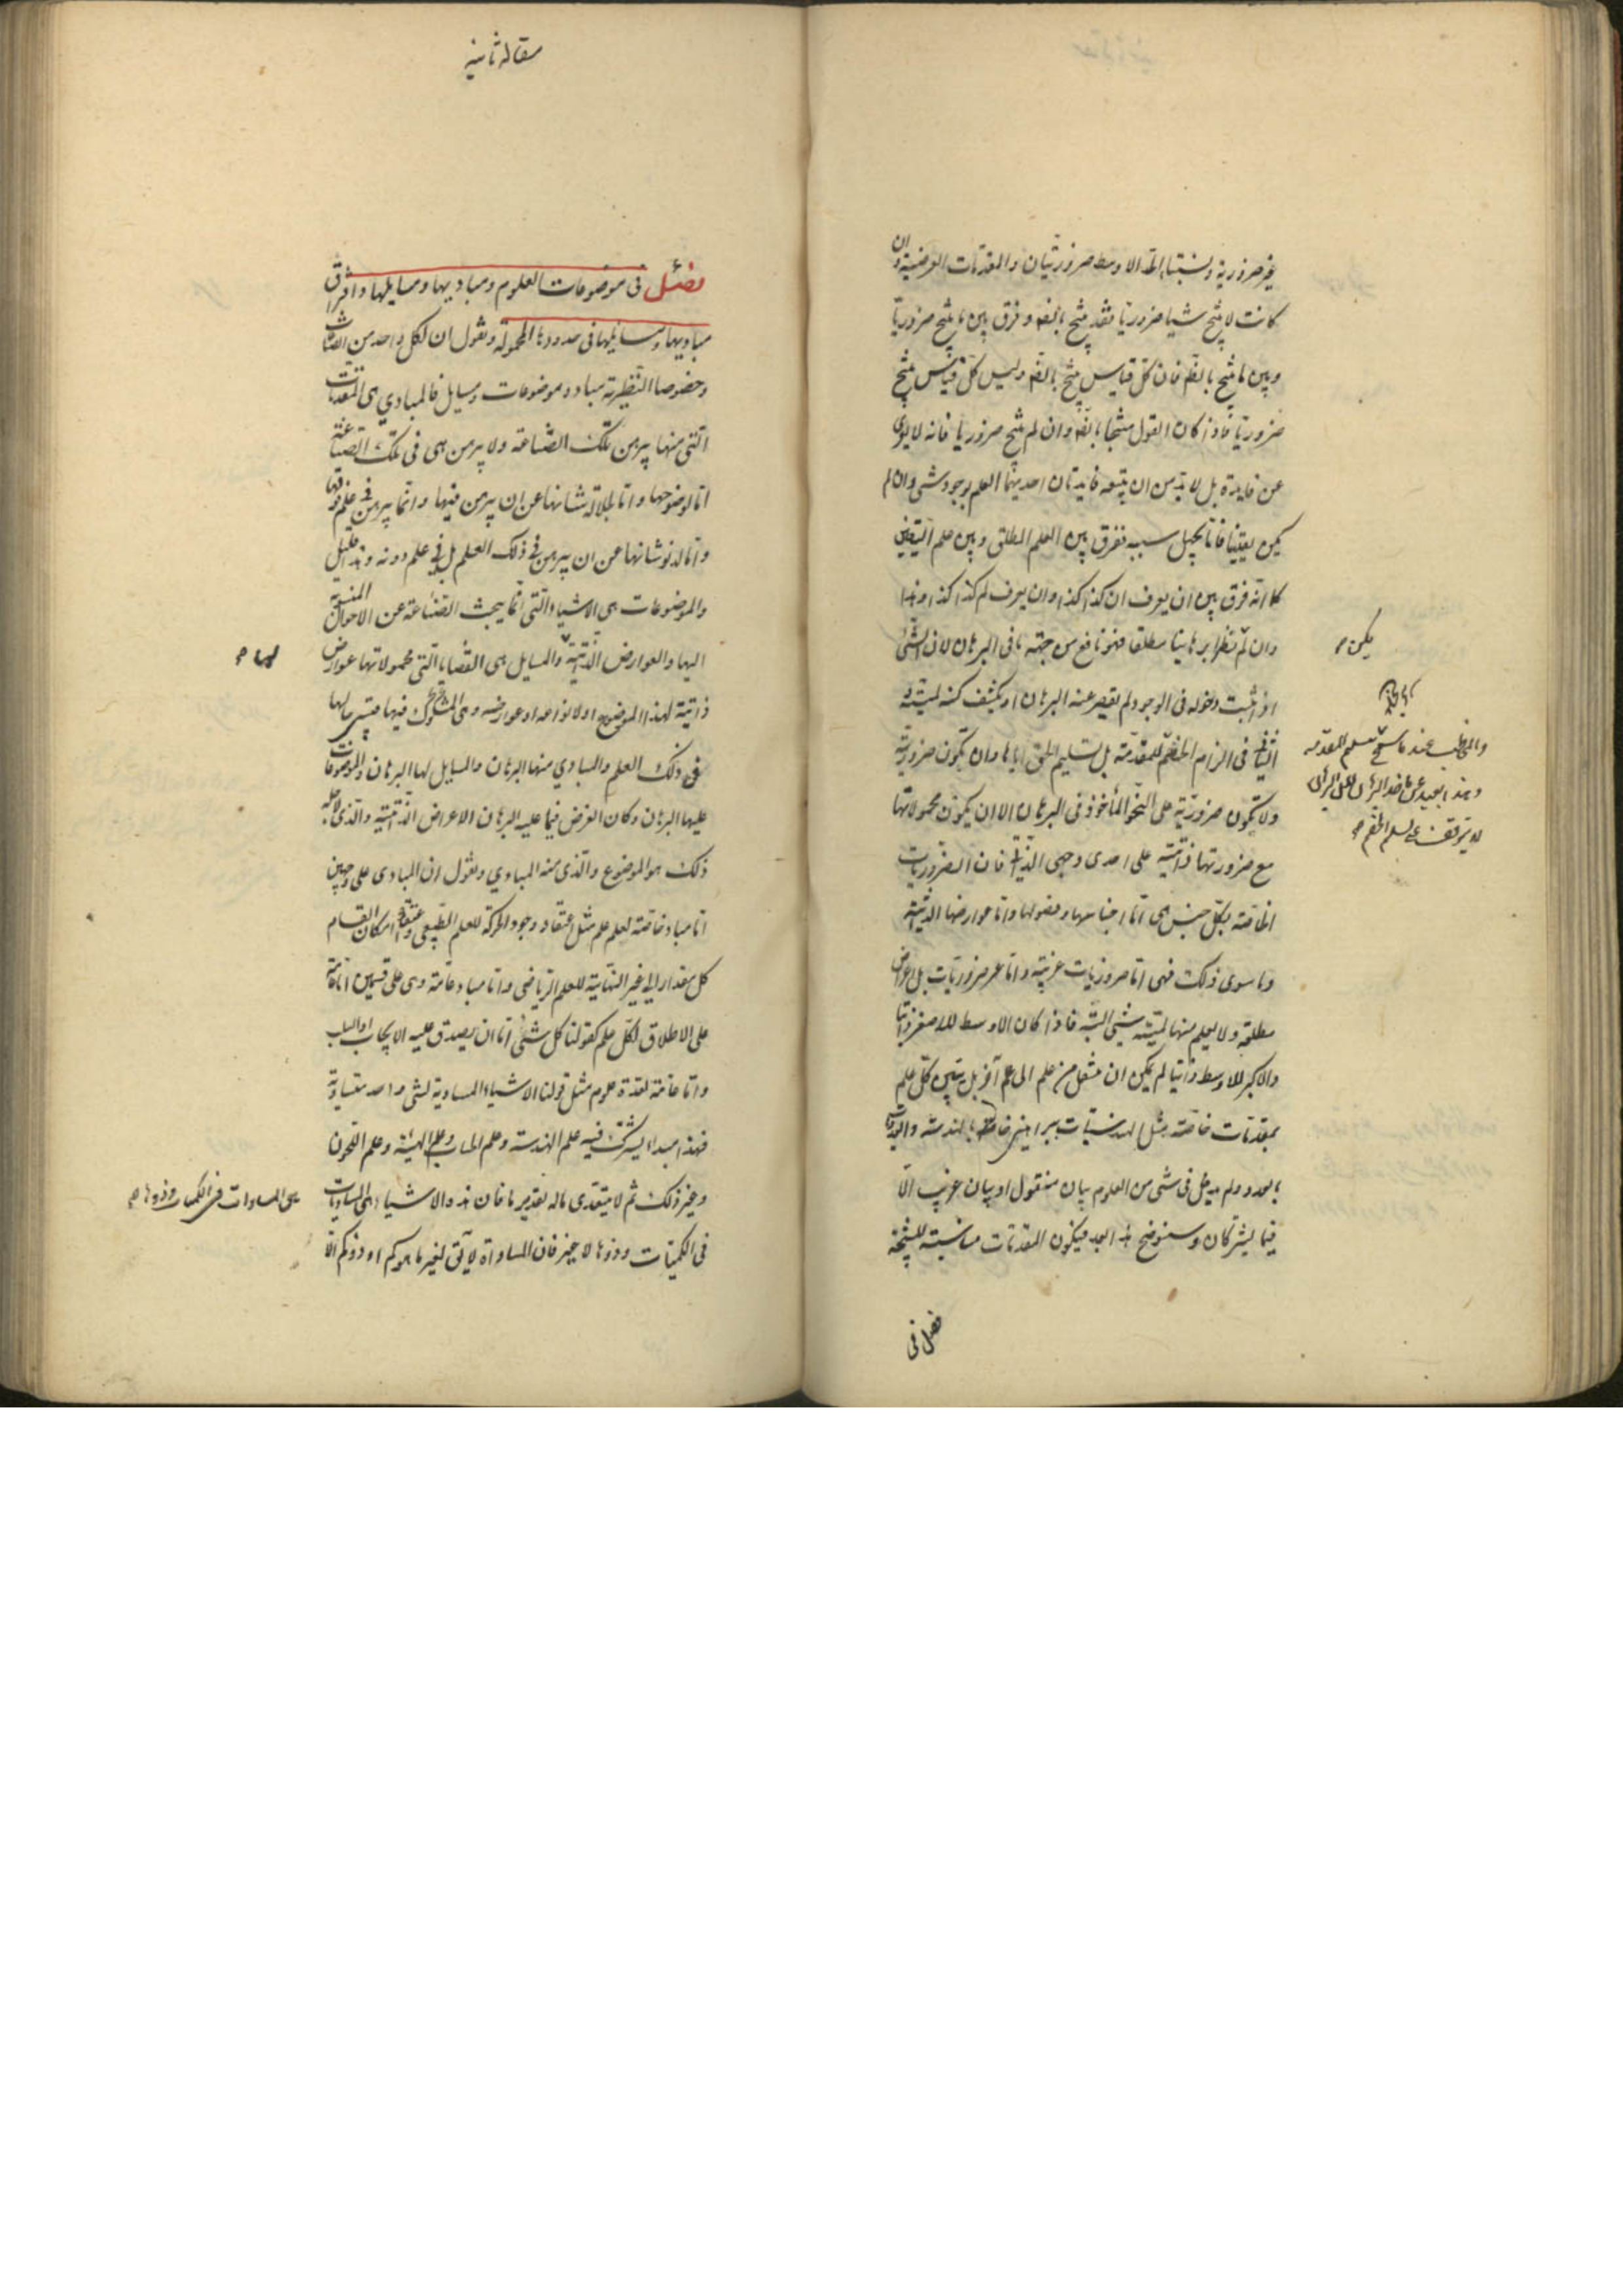 غير ضرورية ونسبتها الى الاوسط ضروريتان والمقدمات العرضية وان
كانت لا ينتج شيا ضروريا فقد ينتج بالضرورة وفرق بين ما ينتج ضروريا
وبين ما ينتج بالضرورة فان كل قياس ينتج بالضرورة وليس كل قياس ينتج
ضروريا فاذا كان القول منتجا بالضرورة وان لم ينتج ضروريا فانه لا يعرى
عن فايدة بل لا بد من ان يتبعه فايدتان احديهما العلم بوجود شى وان لم
يكن يقينيا فانما يجهل سببه ففرق بين العلم المطلق وبين علم اليقين
كما انه فرق بين ان يعرف ان كذا كذا وان يعرف لم كذا كذا وهذا
وان لم نظرا برهانيا مطلقا فهو نافع من جهة ما فى البرهان لان الشئ
اذا ثبت دخوله فى الوجود لم يقصر عنه البرهان او يكشف كنه لميته و
الثانية فى الزام الخصم للمقدمة بل تسليم الحق اياها وان تكون ضرورية
ولا تكون ضرورية على النحو المأخوذ فى البرهان الا ان يكون محمولاتها
مع ضرورتها ذاتية على احدى وجهى الذاتى فان الضروريات
الخاصة بكل جنس هى اما اجناسها وفصولها واما عوارضها الذاتية
وما سوى ذلك فهى اما ضروريات غريبة واما غير ضروريات بل اعراض
مطلقة ولا يعلم منها لمية شئ البتة فاذا كان الاوسط للاصغر ذاتيا
والاكبر للاوسط ذاتيا لم يمكن ان ينتقل من علم الى علم آخر بل يتبين كل علم
بمقدمات خاصة مثل الهندسيات ببراهين خاصة بالهندسة والعدديات
بالعدد ولم يدخل فى شى من العلوم بيان منقول او بيان غريب الا
فيما يشتركان وسنوضح هذا بعد فيكون المقدمات مناسبة للنتيجة
يكن
فصل فى
مقاله ثانيه
فصل فى موضوعات العلوم ومباديها ومسايلها واقتران
مباديها ومسائلها فى حدودها المحمولة ونقول ان لكل واحد من الصناعات
وخصوصا النظرية مباد وموضوعات ومسايل فالمبادي هى المقدمات
التى منها يبرهن تلك الصناعة ولا يبرهن هى فى تلك الصناعة
اما لوضوحها واما لجلالة شانها عن ان يبرهن فيها وانما يبرهن فى علم فوقها
واما لدنو شانها عن ان يبرهن فى ذلك العلم بل فى علم دونه وهذا قليل
والموضوعات هى الاشياء التى انما يبحث الصناعة عن الاحوال المنسوبة
اليها والعوارض الذاتية والمسايل هى القضايا التى محمولاتها عوارض
لها
ذاتية لهذا الموضوع او لانواعه او عوارضه وهى المشكوك فيها فيستبرا حالها
فى ذلك العلم والمبادي منها البرهان والمسايل لها البرهان والموضوعات
عليها البرهان وكان الغرض فيما عليه البرهان الاعراض الذاتية والذى لاجله
ذلك هو الموضوع والذى منه المبادي ونقول ان المبادى على وجهين
اما مباد خاصة لعلم علم مثل اعتقاد وجود الحركة للعلم الطبيعى واعتقاد امكان انقسام
كل مقدار الى غير النهاية للعلم الرياضى واما مباد عامة وهى على قسمين اما عامة
على الاطلاق لكل علم كقولنا كل شئ اما ان يصدق عليه الايجاب او السلب
واما عامة لعدة علوم مثل قولنا الاشياء المساوية لشئ واحد متساوية
فهذا مبداء يشترك فيه علم الهندسة وعلم الحساب وعلم الهيئة وعلم اللحون
وغير ذلك ثم لا يتعدى ماله تقدير ما فان هذه الاشياء هى المساويات
فى الكميات وذوها لا غير فان المساواة لا يقال لغير ما هو كم او ذو كم الا
هى المساوات فى الكميات وذوها